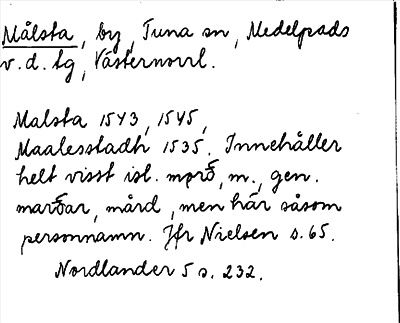 Målsta, by, Tuna sn, Medelpads
v. d. tg, Västernorrl.
Malsta 1543, 1545,
Maalesstadh 1535. Innehåller
helt visst isl. mǫrð, m., gen.
marðar, mård, men här såsom
personnamn. Jfr Nielsen s. 65.
Nordlander 5 s. 232.